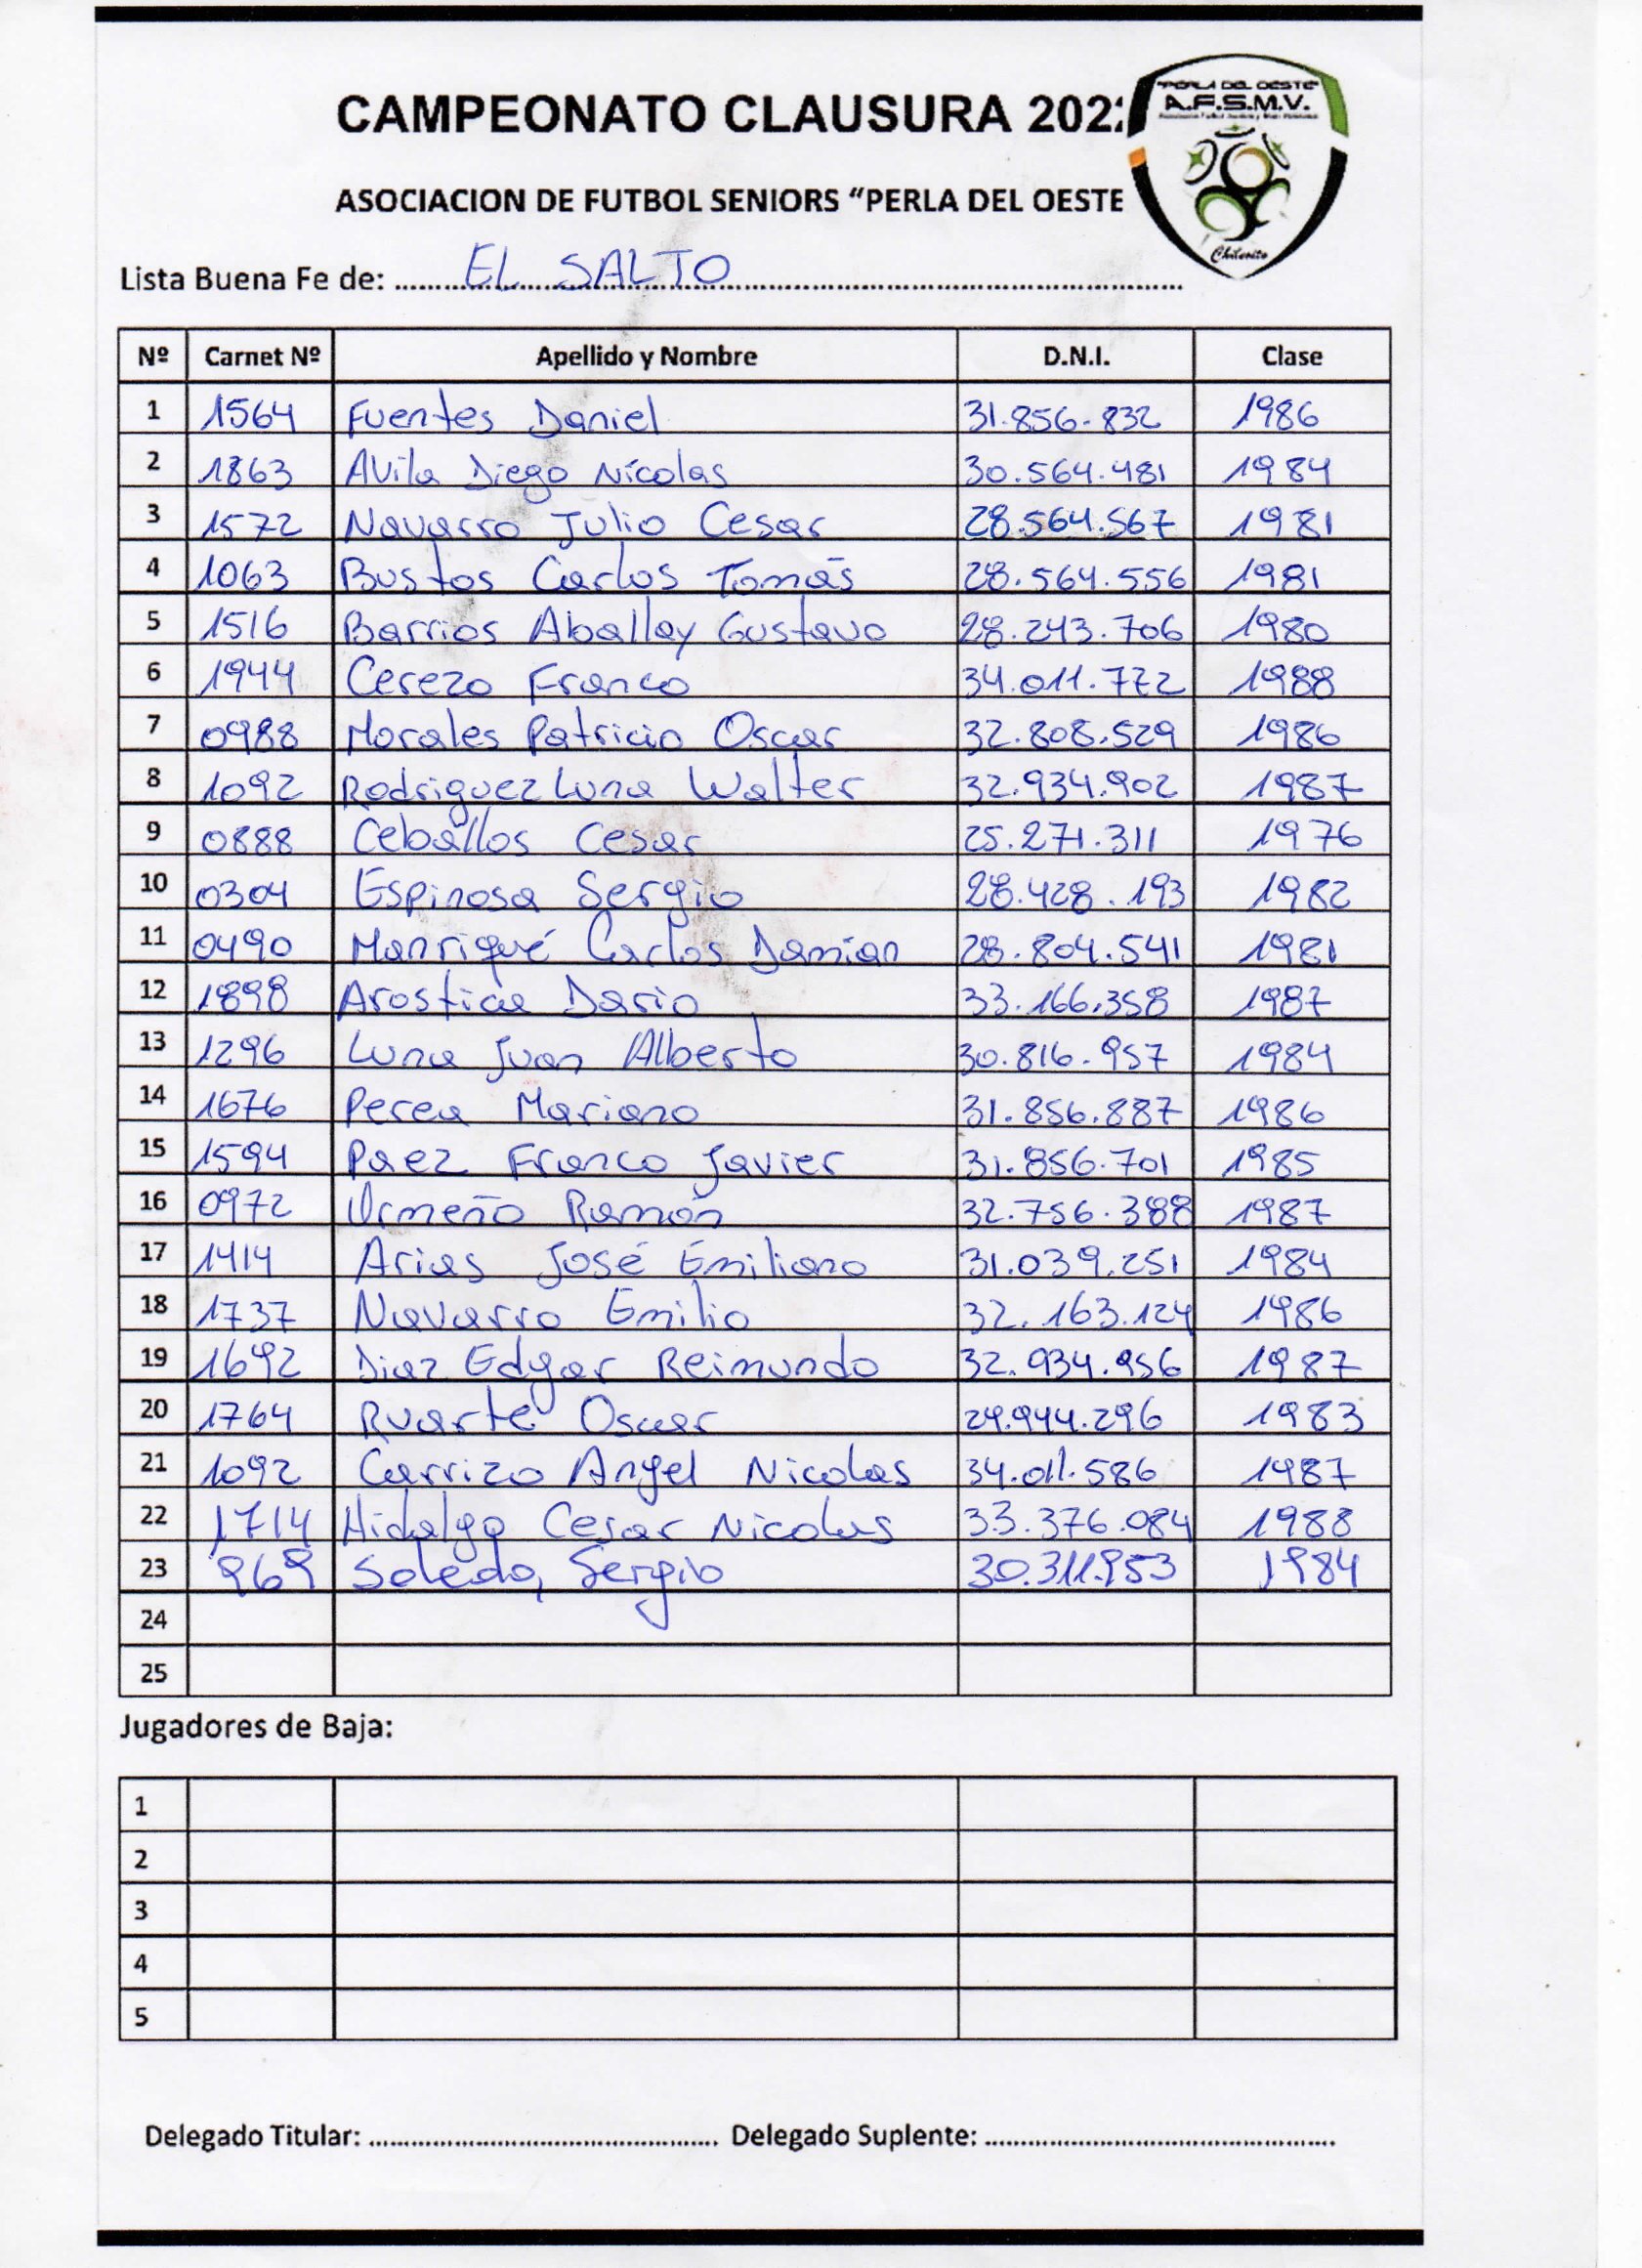 CAMPEONATO CLAUSURA 202
"PERLA DEL OESTE"
A.F.S.M.V.
ASOCIACION DE FUTBOL SENIORS “PERLA DEL OESTE
Chilecito
Lista Buena Fe de: EL SALTO
Nº Carnet Nº Apellido y Nombre D.N.I. Clase
1 1564 Fuentes Daniel 31.856.832 1986
2 1863 Avila Diego Nícolas 30.564.481 1984
3 1572 Navarro Julio Cesar 28.564.567 1981
4 1063 Bustos Carlos Tomás 28.564.556 1981
5 1516 Barrios Aballay Gustavo 28.243.706 1980
6 1944 Cerezo Franco 34.011.772 1988
7 0988 Morales Patricio Oscar 32.808.529 1986
8 1092 Rodriguez Luna Walter 32.934.902 1987
9 0888 Ceballos Cesar 25.271.311 1976
10 0304 Espinosa Sergio 28.428.193 1982
11 0490 Manriqué Carlos Damian 28.804.541 1981
12 1898 Arostica Dario 33.166.358 1987
13 1296 Luna Juan Alberto 30.816.957 1984
14 1676 Perea Mariano 31.856.887 1986
15 1594 Paez Franco Javier 31.856.701 1985
16 0972 Urmeño Ramón 32.756.388 1987
17 1414 Arias José Emiliano 31.039.251 1984
18 1737 Navarro Emilio 32.163.124 1986
19 1692 Diaz Edgar Reimundo 32.934.956 1987
20 1764 Ruarte Oscar 29.944.296 1983
21 1092 Carrizo Angel Nicolas 34.011.586 1987
22 1714 Hidalgo Cesar Nicolas 33.376.084 1988
23 969 Soledo, Sergio 30.311.953 1984
24
25
Jugadores de Baja:
1
2
3
4
5
Delegado Titular: Delegado Suplente: